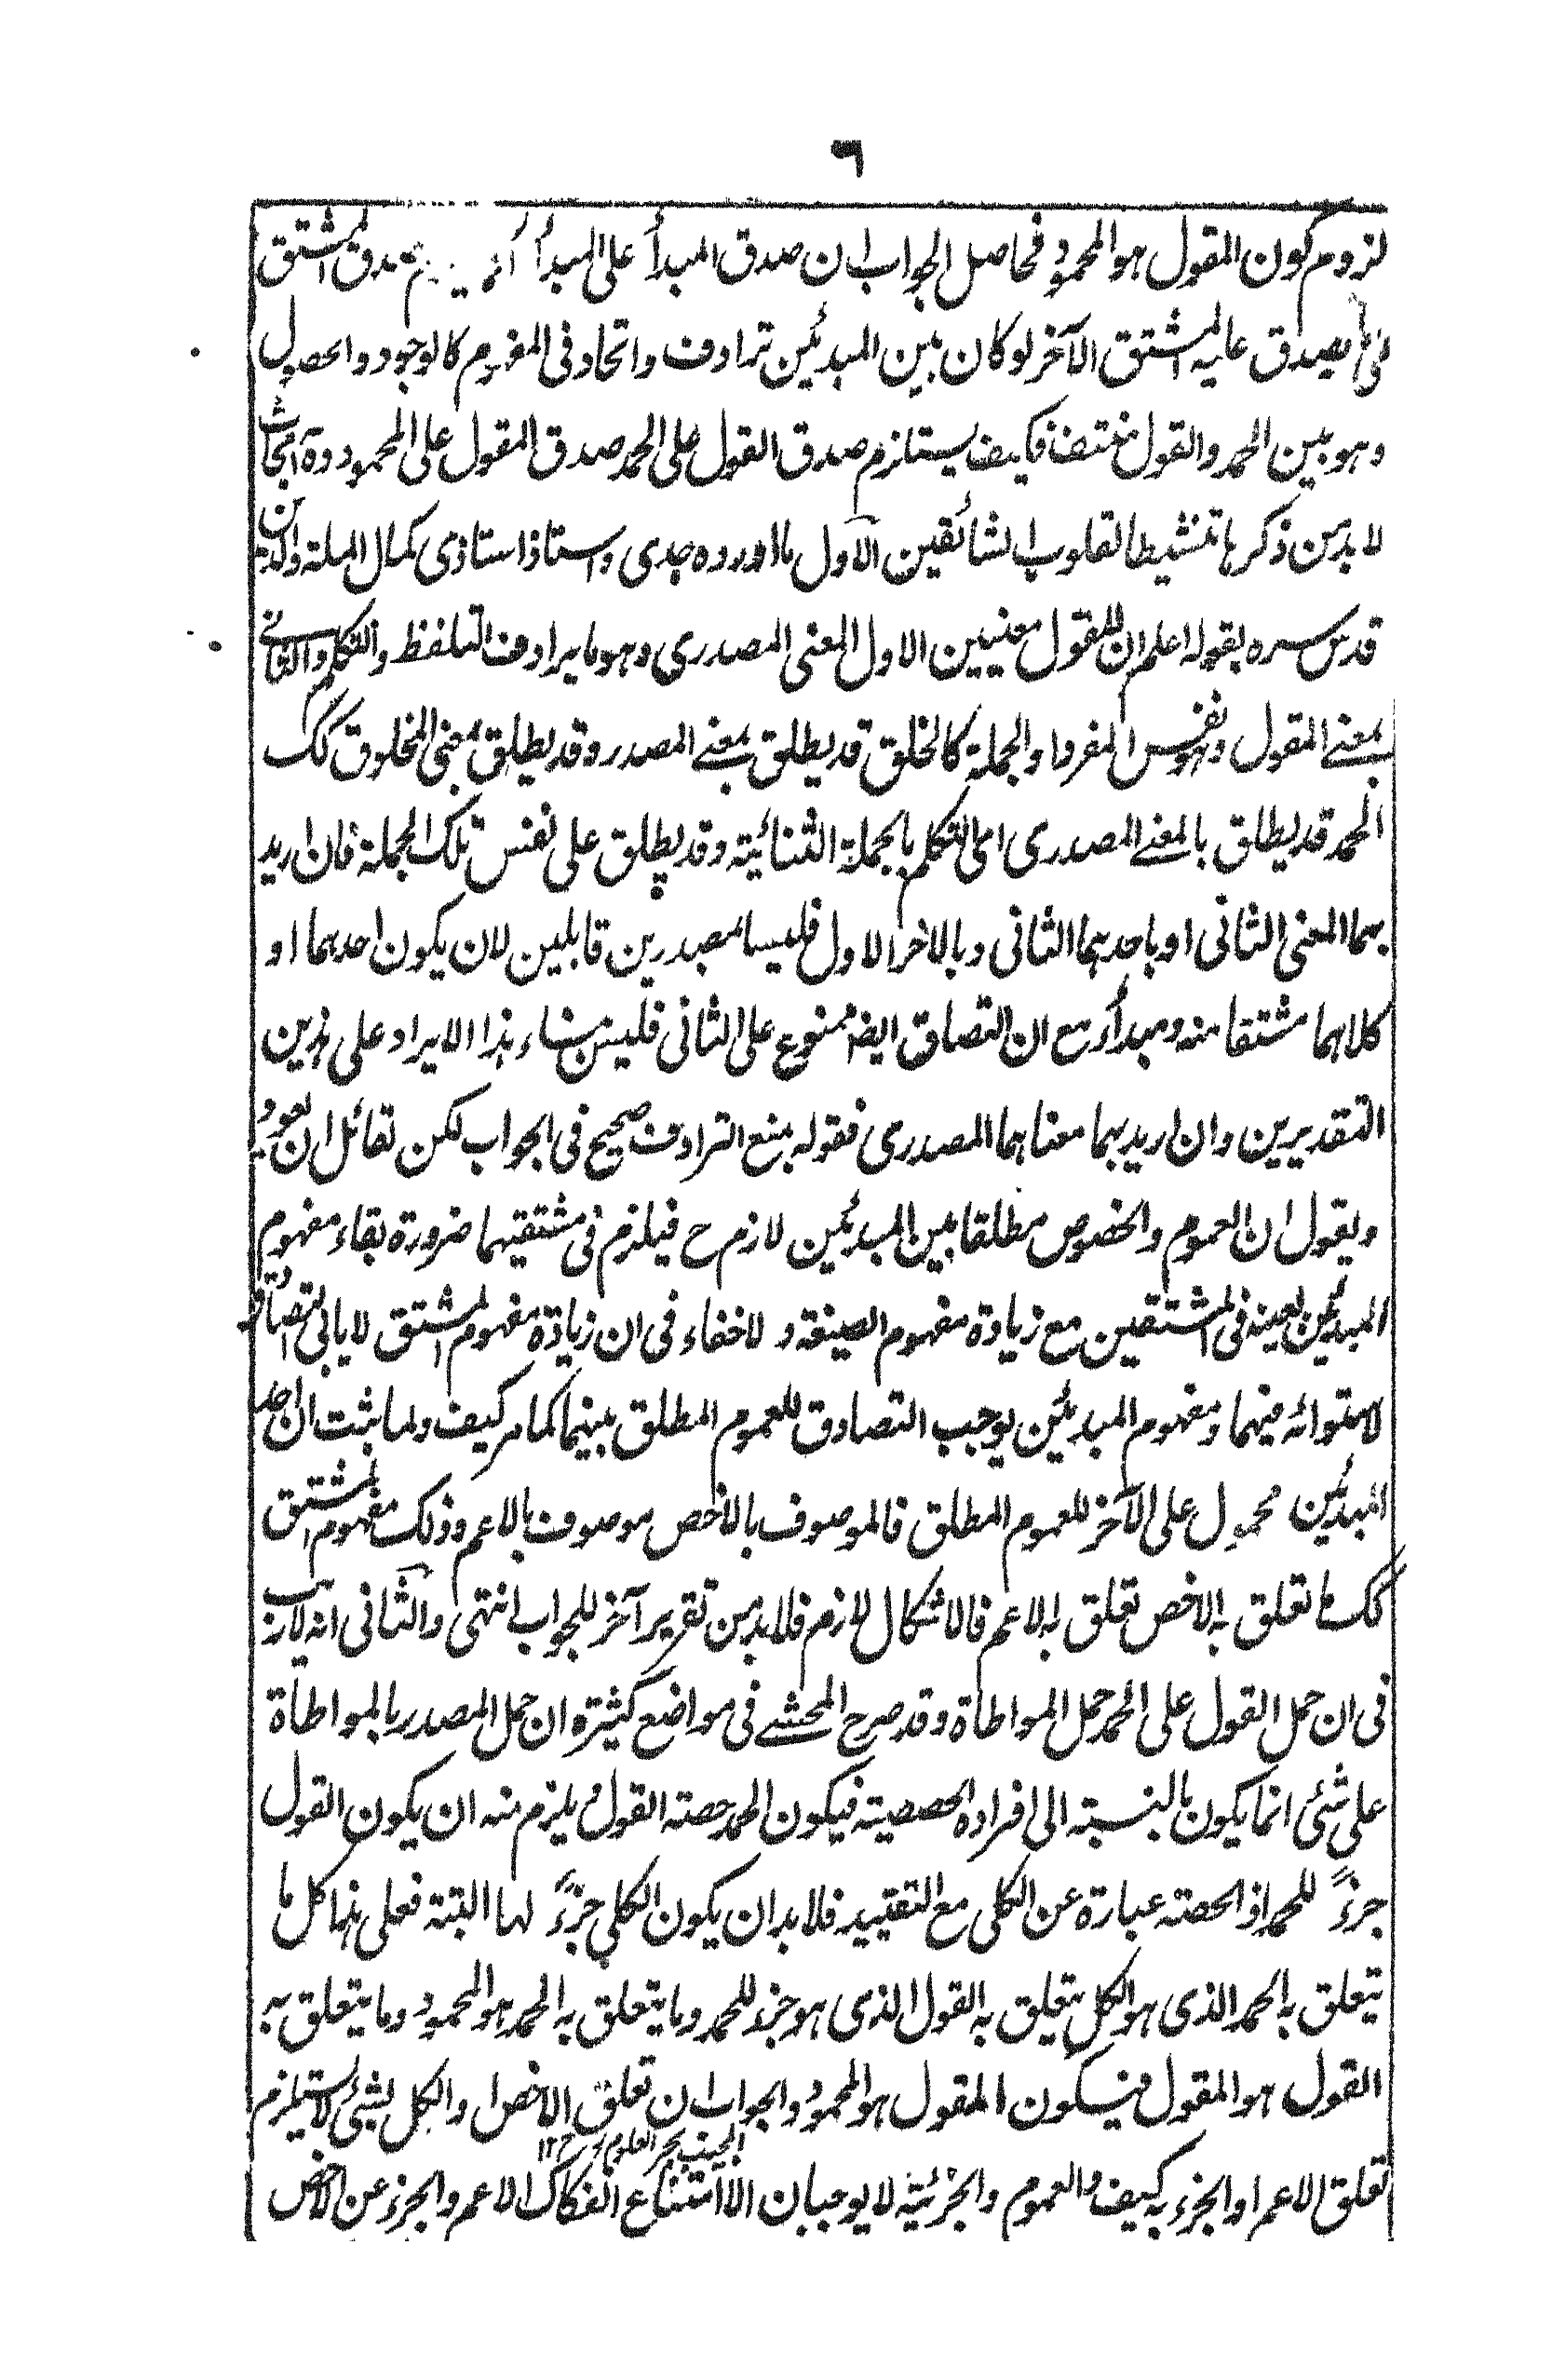 ٦
لزوم كون المقول هو المحمود فحاصل الجواب ان صدق المبدأ على المبدأ صدق المشتق
يصدق عليه المشتق الآخر لو كان بين المبدئين ترادف واتحاد فى المفهوم كالوجود والحصول
وهو بين الحمد والقول منتف فكيف يستلزم صدق القول على الحمد صدق المقول على المحمود وههنا ابحاث
لا بد من ذكرها تنشيطا لقلوب الشائقين الاول ما اورده جدى واستاذ استاذى كمال الملة والدين
قدس سره بقوله اعلم ان للقول معنيين الاول المعنى المصدرى وهو ما يرادف التلفظ والتكلم والثانى
بمعنے المقول وهو نفس المفرد او الجملة كالخلق قد يطلق بمعنے المصدر وقد يطلق بمعنى المخلوق كك
الحمد قد يطلق بالمعنے المصدرى اى التكلم بالجملة الثنائية وقد يطلق على نفس تلك الجملة فان اريد
بهما المعنى الثانى او باحدهما الثانى وبالاخر الاول فليسا بمصدرين قابلين لان يكون احدهما او
كلاهما مشتقا منه ومبدأ مع ان التصادق ايضا ممنوع على الثانى فليس منشاء هذا الايراد على هذين
التقديرين وان اريد بهما معناهما المصدرى فقوله بمنع الترادف صحيح فى الجواب لكن لقائل ان يعود
ويقول ان العموم والخصوص مطلقا بين المبدئين لازم ح فيلزم فى مشتقيهما ضرورة بقاء مفهوم
المبدئين بعينه فى المشتقين مع زيادة مفهوم الصيغة ولا خفاء فى ان زيادة مفهوم المشتق لا يابى التصادق
لاستوائه فيهما ومفهوم المبدئين يوجب التصادق للعموم المطلق بينهما كما مر كيف ولما ثبت ان احد
المبدئين محمول على الآخر للعموم المطلق فالموصوف بالاخص موصوف بالاعم وذلك مفهوم المشتق
كك ما تعلق به الاخص تعلق به الاعم فالاشكال لازم فلا بد من تقرير آخر للجواب انتهى والثانى انه لا ريب
فى ان حمل القول على الحمد حمل المواطاة وقد صرح المحشے فى مواضع كثيرة ان حمل المصدر بالمواطاة
على شئ انما يكون بالنسبة الى افراده الحصصية فيكون الحمد حصة القول ويلزم منه ان يكون القول
جزءً للحمد اذ الحصة عبارة عن الكلى مع التقييد فلا بد ان يكون الكلى جزءً لها البتة فعلى هذا كل ما
يتعلق به الحمد الذى هو الكل يتعلق به القول الذى هو جزء للحمد وما يتعلق به الحمد هو المحمود وما يتعلق به
القول هو المقول فيكون المقول هو المحمود والجواب ان تعلق الاخص او الكل بشئ لا يستلزم
المجيب بحر العلوم رح ١٢
تعلق الاعم او الجزء به كيف والعموم والجزئية لا يوجبان الا امتناع انفكاك الاعم والجزء عن الاخص